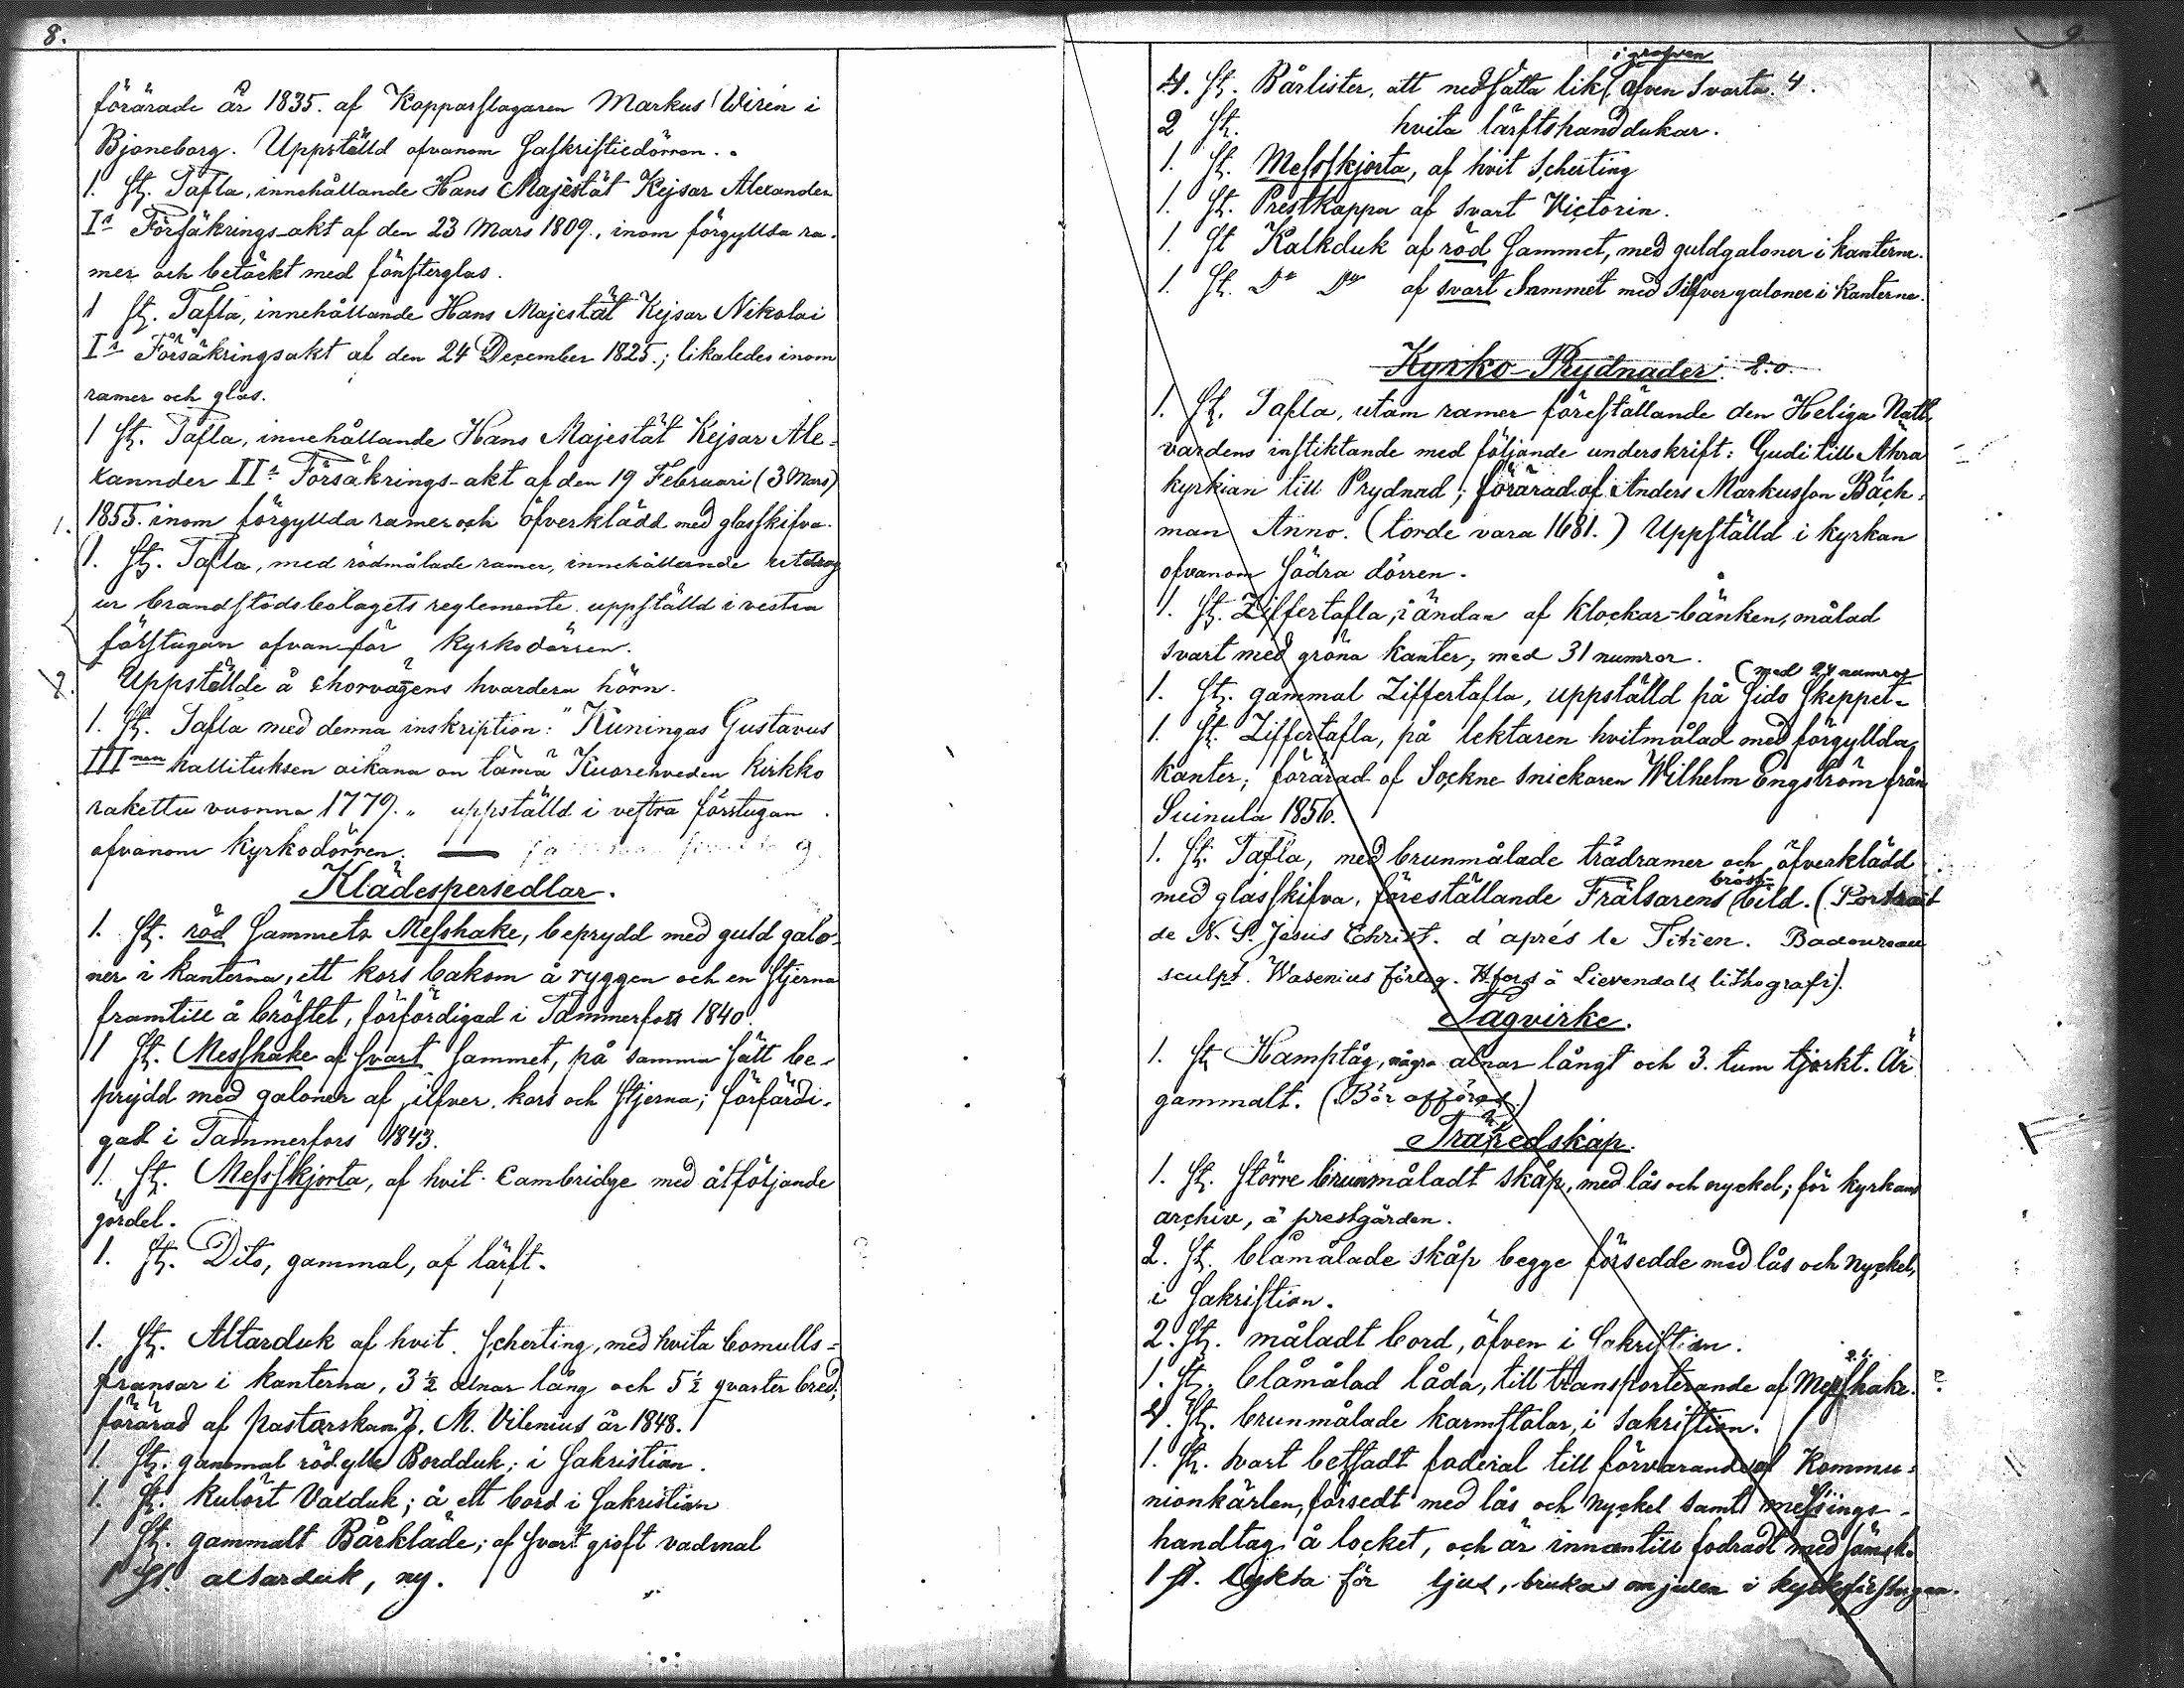 8.
förärade år 1835. af Kopparslagaren Markus Wirén i
Bjöneborg. Uppställd ofvanom Sakristiedörren.
1. St. Tafla, innehållande Hans Majestät Kejsar Alexander
I:s Försäkrings-akt af den 23 Mars 1809., inom förgyllda ra-
mer och betäckt med fönsterglas.
1 St. Tafla, innehållande Hans Majestät Kejsar Nikolai
I:s Försäkringsakt af den 24 December 1825.; likaledes inom
ramer och glas.
1 St. Tafla, innehållande Hans Majestät Kejsar Ale-
xannder II:s Försäkrings-akt af den 19 Februari (3 Mars)
1855. inom förgyllda ramer och öfverklädd med glasskifva.
1. 1. St. Tafla, med rödmålade ramer, innehållande utdrag
ur brandstodsbolagets reglemente. uppställd i vestra
förstugan ofvanför kyrkodörren.
2. Uppstälde å chorvägens hvardera hörn.
1. St. Tafla med denna inskription: "Kuningas Gustavus
III man hallituksen aikana on tämä Kuoreweden kirkko
rakettu vuonna 1779. " uppställd i vestra förstugan
ofvanom kyrkodörren. —
Klädespersedlar.
1. St. röd Sammets Messhake, beprydd med guld galo-
ner i kanterna, ett kors bakom å ryggen och en stjerna
framtill å bröstet, förfärdigad i Tammerfors 1840.
1 St. Messhake af svart Sammet, på samma sätt be-
prydd med galoner af silfver. kors och stjerna; förfärdi-
gad i Tammerfors 1843.
1. St. Messskjorta, af hvit Cambridge med åtföljande
gördel.
1. St. Dito, gammal, af lärft.
1. St. Altarduk af hvit Scherting, med hvita bomulls-
fransar i kanterna, 3½ alnar lång och 5½ qvarter bred;
förärad af pastorskan J. M. Vilenius år 1848.
1 St. gammal röd ylle Bordduk; i Sakristian.
1. St. kulört Vaxduk; å ett bord i Sakristian
1 St. gammalt Bårkläde; af svart groft vadmal
1 St. altarduk, ny.
9.
i grafven
4. St. Bårlister, att nedsätta lik, äfven svarta. 4.
2 St. hvita lärftshanddukar.
1. St. Messskjorta, af hvit Scherting
1. St. Prestkappa af svart Victorin.
1. St Kalkduk af röd Sammet, med guldgaloner i kanterne.
1. St. Do Do af svart Sammet med Silfvergaloner i kanterne.
Kyrko-Prydnader. 2:o.
1. St. Tafla, utom ramer föreställande den Heliga Natt-
vardens instiktande med följande underskrift: Gudi till Ähra
kyrkian till Prydnad; förärad af Anders Markusson Bäck-
man Anno. (torde vara 1681.) Uppställd i kyrkan
ofvanom Södra dörren.
1. St. Ziffertafla, i ändan af klockar-bänken, målad
svart med gröna kanter, med 31 numror.
(med 24 numror
1. St. gammal Ziffertafla, uppställd på Sido skeppet-
1. St. Ziffertafla, på lektaren hvitmålad med förgyllda
kanter; förärad af Sockne snickaren Wilhelm Engström från
Suinula 1856.
1. St. Tafla, med brunmålade trädramer och öfverklädd
bröst-
med glasskifva, föreställande Frälsarens bild. (Portrait
de N. S. Jésus Christ. d'après le Titien. Badoureau
sculpt. Wasenius förlag. H:fors å Lievendals lithografi).
Tagvirke.
1. St Hamptåg, några alnar långt och 3. tum tjockt. Är
gammalt. (Bör afföras.)
Träredskap.
1. St. Större brunmåladt skåp, med lås och nyckel; för kyrkans
archiv, å prestgården.
2. St. blåmålade skåp begge försedde med lås och nyckel,
i Sakristian.
2. St. måladt bord, äfven i Sakristian.
2 St.
1. St. blåmålad låda, till transporterande af Messhake. ?
4. St. brunmålade karmstolar, i sakristian.
1. St. svart betsadt foderal till förvarande af Kommu-
nionkärlen, försedt med lås och nyckel samt messings-
handtag å locket, och är innantill fodradt med sämsk.
1 st. lykta för ljus, brukas om julen i kyrkoförstugan.